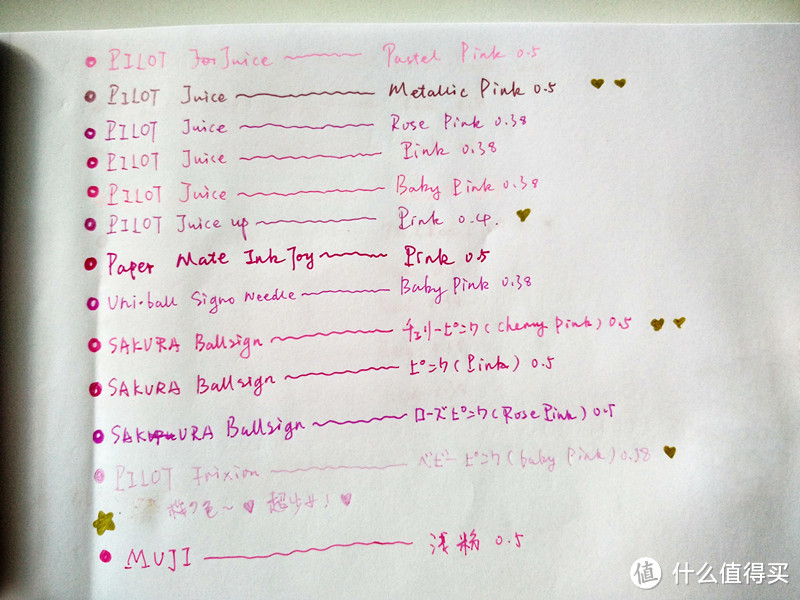 PILOT Juice ~ Pastel Pink 0.5
PILOT Juice ~ Metallic Pink 0.5
PILOT Juice ~ Rose Pink 0.38
PILOT Juice ~ Pink 0.38
PILOT Juice ~ Baby Pink 0.38
PILOT Juice up ~ Pink 0.4.
Paper Mate InkJoy ~ Pink 0.5
Uni-ball Signo Needle ~ Baby Pink 0.38
SAKURA Ballsign ~ チェリーピンク(Cherry Pink) 0.5
SAKURA Ballsign ~ ピンク(Pink) 0.5
SAKURA Ballsign ~ ローズピンク(Rose Pink) 0.5
PILOT Frixion ~ ベビーピンク(baby Pink) 0.38
桜の色~♥ 超少女!♥
MUJI ~ 浅粉 0.5
值 什么值得买